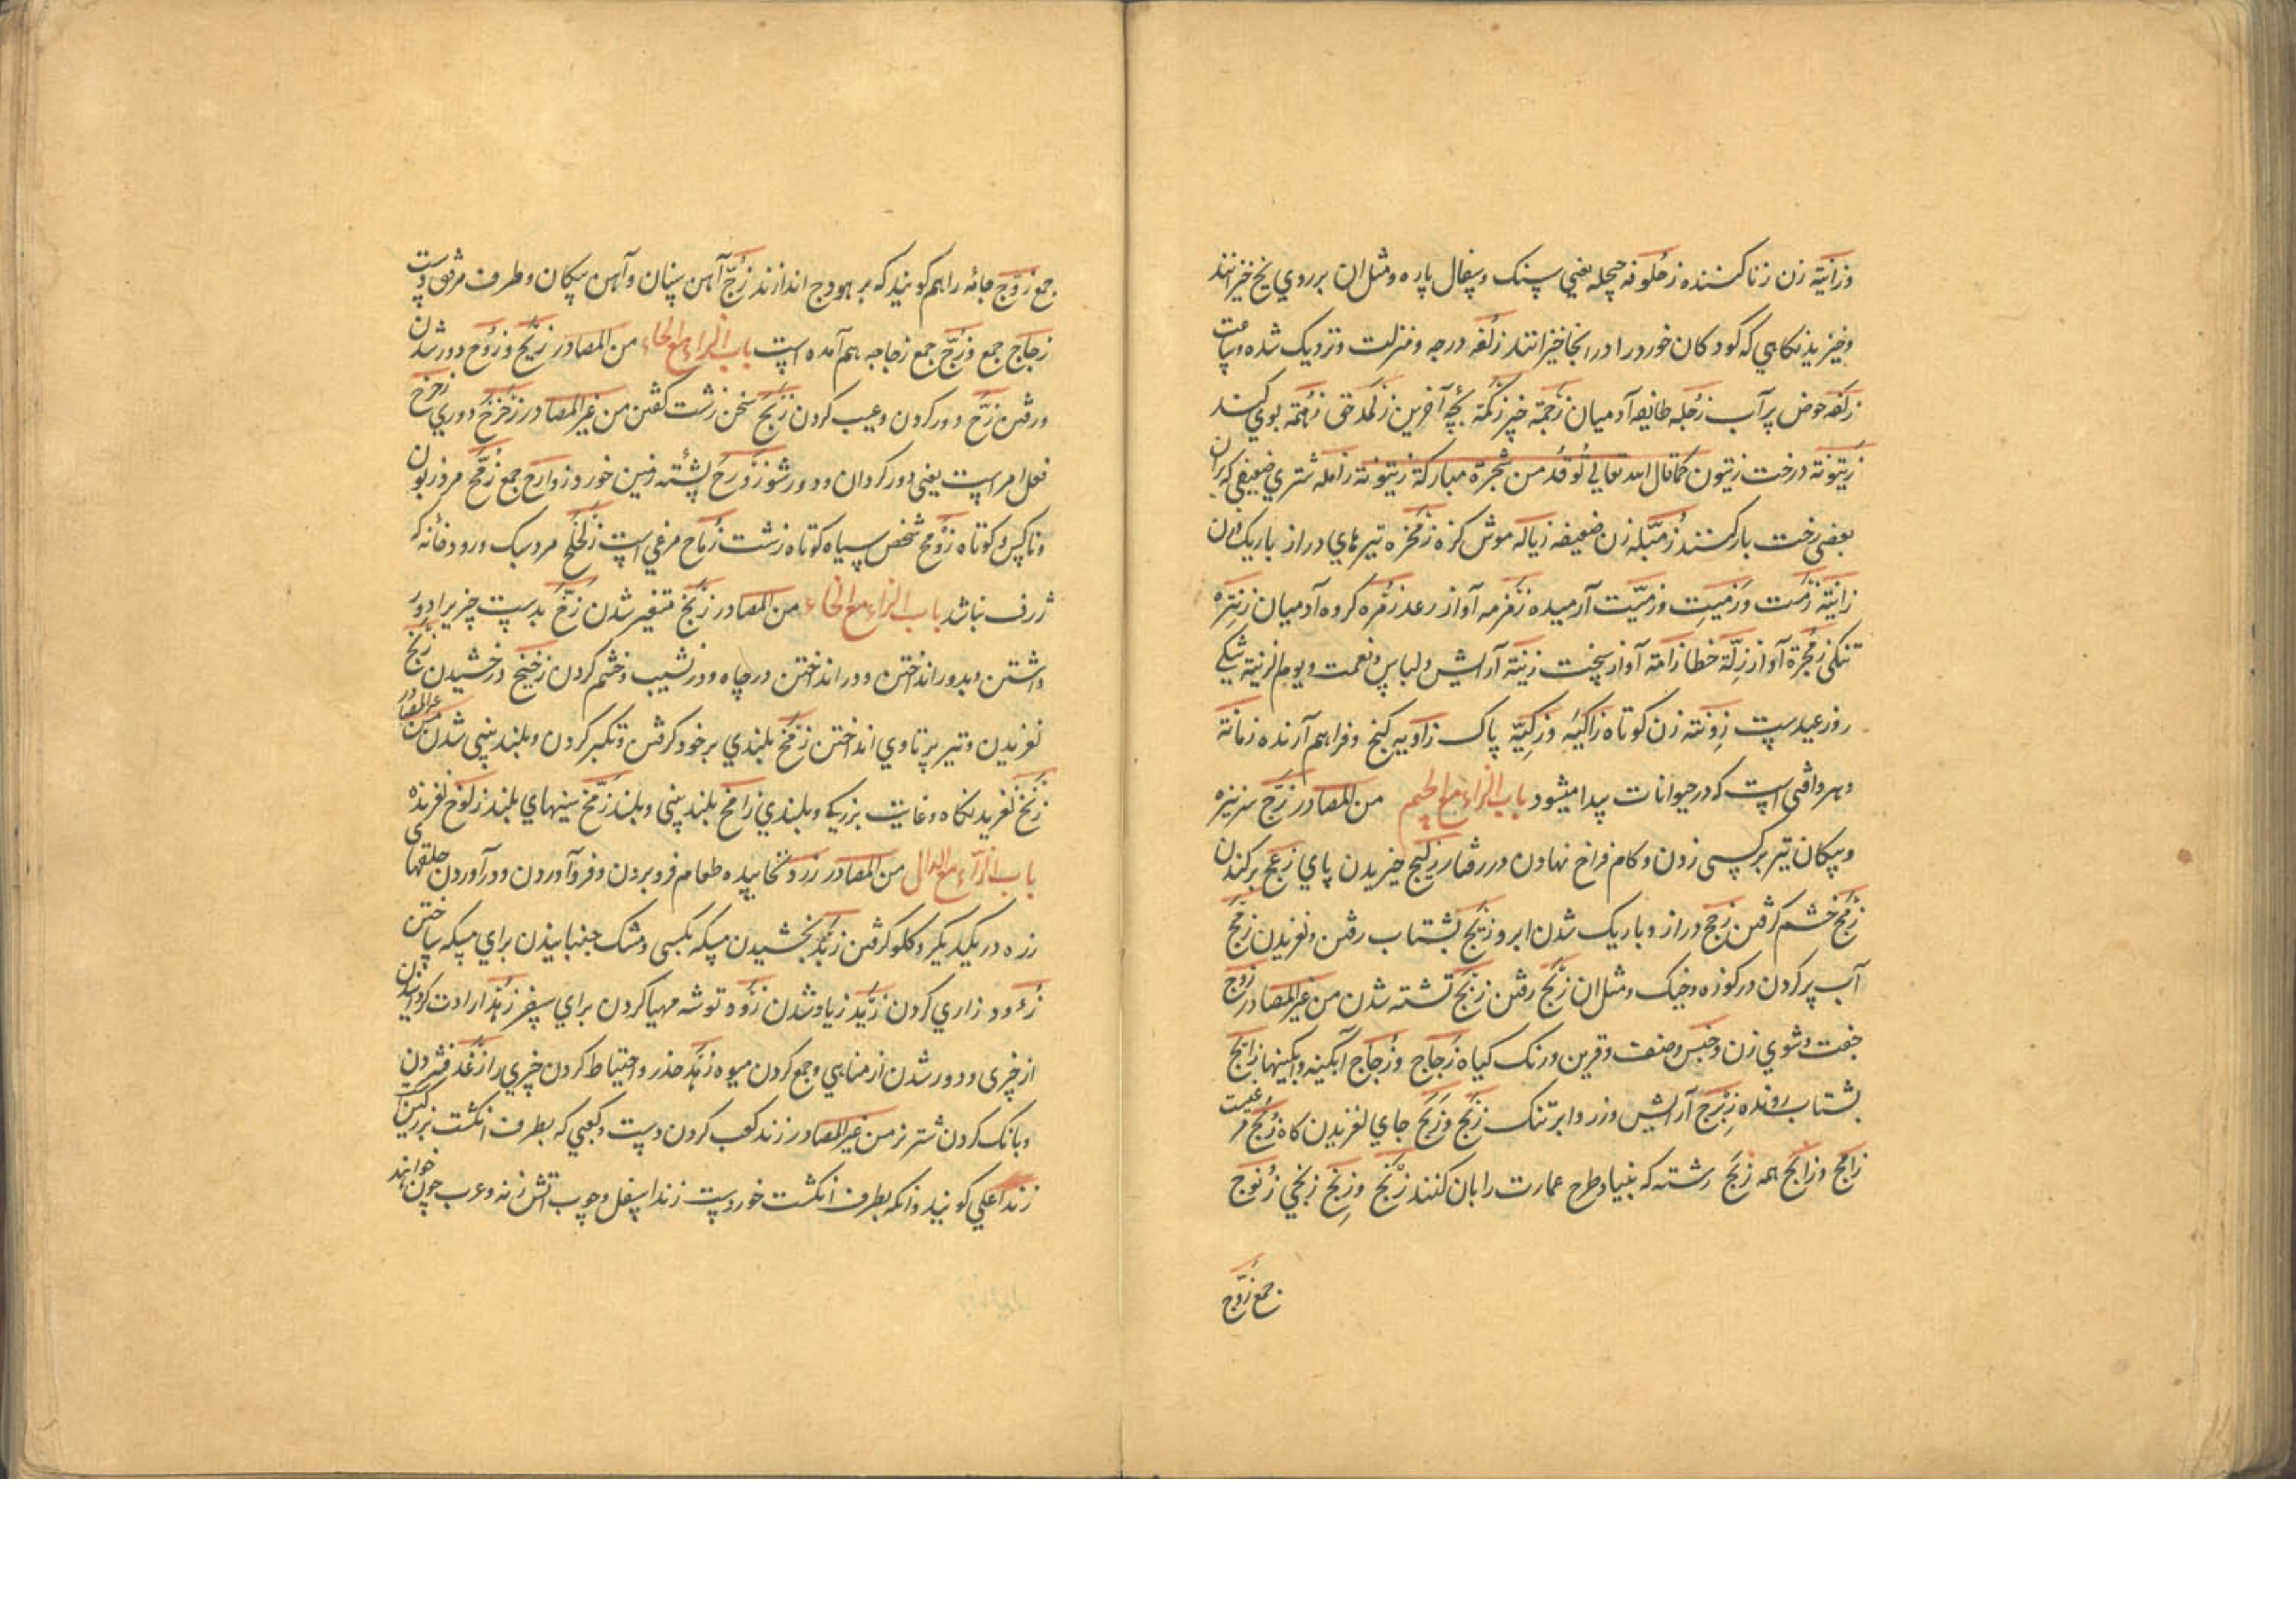 وزانیة زن زنا کننده زحلوفه چچله یعنی سنک وسفال پاره ومثل ان بر روی یخ خیزانند
وخیزیدنکاهی که کودکان خود را در انجا خیزانند زلفه درجه ومنزلت ونزدیک شده وساعت
زلفه حوض پر آب زجله طایفه آدمیان زجمة چیز زکمة بچه آخرین زهمة بوی کند
زیتونة درخت زیتون کما قال الله تعالی توقد من شجرة مبارکة زیتونة زامله شتری ضعیفی که بران
بعضی رخت بار کنند زمیله زن ضعیفه زبابه موش کزه زمخره تیرهای دراز باریک
زانیة زمت وزمیت وزمیت آرمیده زمزمه آواز رعد زمره کروه آدمیان
تنکی زمجرة آواز زلة خطا زامة آواز سخت زینة آرایش ولباس ونعمت ویوم الزینة یکی
روز عیدست زونة زن کوتاه زاکیه وزکیة پاک زاویه کنج وفراهم آرنده زمانة
وهر واقعی است که در حیوانات پیدا میشود باب الزاء مع الجیم من المصادر زج سرنیزه
وپیکان تیر بر کسی زدن وکام فراخ نهادن در رفتار زلیج خیزیدن پای زعج برکندن
زمج خشم کرفتن زجج دراز وباریک شدن ابرو زلیج بشتاب رفتن ولغزیدن زمج
آب پر کردن در کوزه وخیک ومثل ان زلج رفتن زنج تشنه شدن من غیر المصادر زوج
جفت وشوی زن وجنس وصنف وقرین ورنک کیاه زجاج وزجاج آبکینه وآبکینها زالج
بشتاب رونده زبرج آرایش وزر وابر تنک زلج وزلج جای لغزیدن کاه زمج مرغیست
زامج وزابج همه زیج رشته که بنیاد وطرح عمارت را بان کنند زنج وزنج زنجی زنوج
جمع زوج
جمع زوج جامه را هم کویند که بر هودج اندازند زج آهن سنان وآهن پیکان وطرف مرفق دست
زجاج جمع وزج جمع زجاجه هم آمده است باب الزاء مع الحاء من المصادر زیح وزوح دور شدن
ورفتن زح دور کردن وعیب کردن زبح سخن زشت کفتن من غیر المصادر زحزح دوری زحزح
فعل امر است یعنی دور کردان ودور شو زروح پشته زمین خورد زوارح جمع زمح مرد زبون
وناکس وکوتاه زومح شخص سیاه کوتاه زشت زماح مرغی است زلحلح مرد سبک ورودخانه که
ژرف نباشد باب الزاء مع الخاء من المصادر زنخ متغیر شدن زخ بدست چیزی را دور
داشتن وبدور انداختن ودر انداختن در چاه ودر نشیب وخشم کردن زخیخ درخشیدن زلخ
لغزیدن وتیر پرتاوی انداختن زمخ بلندی بر خود کرفتن وتکبر کردن وبلند بینی شدن من غیر المصادر
زلخ لغزیدنکاه وغایت بزرکی وبلندی زامخ بلند بینی وبلند زمخ بینیهای بلند زلوخ لغزنده
باب الزاء مع الدال من المصادر زرد نخاییده طعام فرو بردن وفرو آوردن ودر آوردن حلقهای
زره در یکدیکر وکلو کرفتن زبد بخشیدن مسکه بکسی ومشک جنبانیدن برای مسکه ساختن
زءود زاری کردن زید زیاد شدن زود توشه مهیا کردن برای سفر زهد ارادت کردانیدن
از چیزی ودور شدن از مناهی وجمع کردن میوه زهد حذر واحتیاط کردن چیزی را زغد فشردن
وبانک کردن شتر نر من غیر المصادر زند کعب کردن دست وکعبی که بطرف انکشت بزرکین
زند اعلی کویند وانکه بطرف انکشت خوردست زند اسفل وچوب آتش زنه وعرب چون خواهند